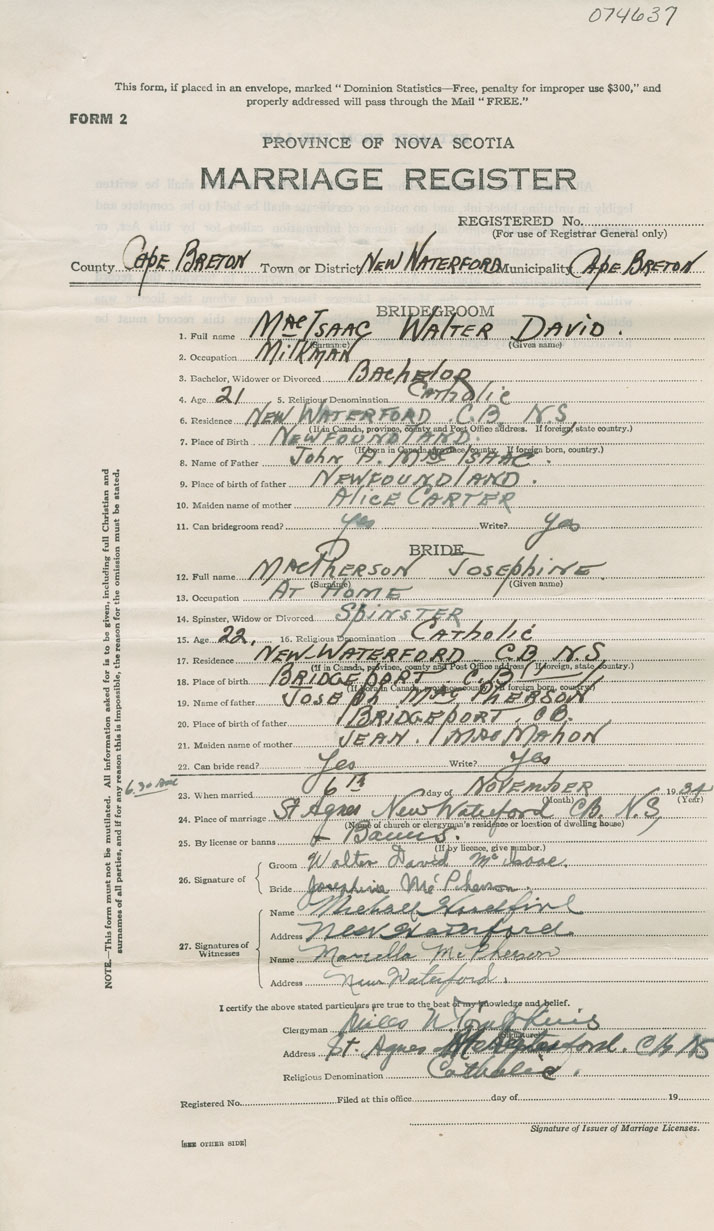 074637
This form, if placed in an envelope, marked "Dominion Statistics—Free, penalty for improper use $300," and
properly addressed will pass through the Mail "FREE."
FORM 2
PROVINCE OF NOVA SCOTIA
MARRIAGE REGISTER
REGISTERED No.
(For use of Registrar General only)
County Cape Breton Town or District New Waterford Municipality Cape Breton
BRIDEGROOM
1. Full name MacIsaac Walter David.
(Surname) (Given name)
2. Occupation Milkman
3. Bachelor, Widower or Divorced Bachelor
4. Age 21 5. Religious Denomination Catholic
6. Residence New Waterford C.B. N.S.
(If in Canada, province, county and Post Office address. If foreign, state country.)
7. Place of Birth Newfoundland.
(If born in Canada, province, county. If foreign born, country.)
8. Name of Father John A. MacIsaac.
9. Place of birth of father Newfoundland.
10. Maiden name of mother Alice Carter
11. Can bridegroom read? yes Write? yes
BRIDE
12. Full name MacPherson Josephine.
(Surname) (Given name)
13. Occupation At Home
14. Spinster, Widow or Divorced Spinster
15. Age 22. 16. Religious Denomination Catholic
17. Residence New Waterford C.B. N.S.
(If in Canada, province, county and Post Office address. If foreign, state country.)
18. Place of birth Bridgeport. C.B.
(If born in Canada, province, county. If foreign born, country)
19. Name of father Joseph MacPherson
20. Place of birth of father Bridgeport, CB.
21. Maiden name of mother Jean. MacMahon
22. Can bride read? Yes Write? Yes
6.30
23. When married 6th day of November 1934
(Month) (Year)
24. Place of marriage St Agnes New Waterford C.B. N.S.
(Name of church or clergyman's residence or location of dwelling house)
25. By license or banns Banns.
(If by licence, give number.)
26. Signature of
Groom Walter David McIsaac.
Bride Josephine McPherson.
27. Signatures of Witnesses
Name Michael
Address New Waterford.
Name Marcella McPherson
Address New Waterford.
I certify the above stated particulars are true to the best of my knowledge and belief.
Clergyman Miles N Tompkins
Address St. Agnes New Waterford. CB NS
Religious Denomination Catholic.
Registered No. Filed at this office day of 19
Signature of Issuer of Marriage Licenses.
[SEE OTHER SIDE]
NOTE.—This form must not be mutilated. All information asked for is to be given, including full Christian and
surnames of all parties, and if for any reason this is impossible, the reason for the omission must be stated.